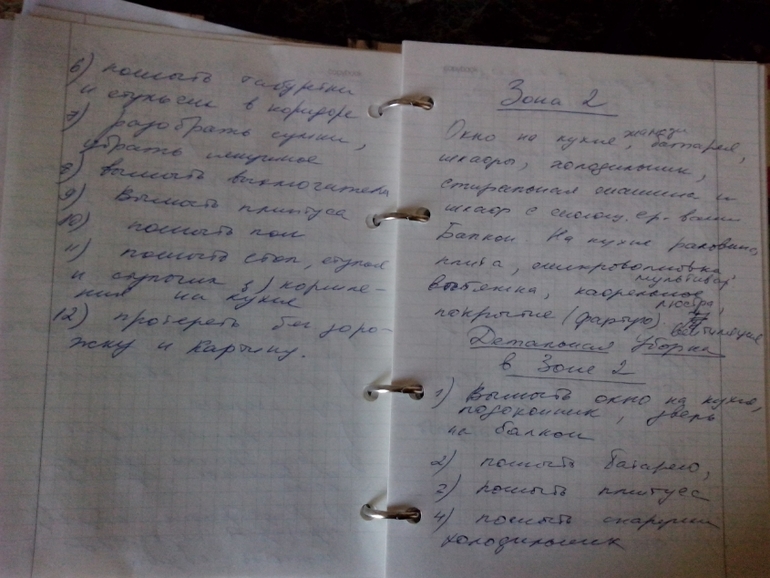 6) помыть табуретки
и стульчик в коридоре
7) разобрать сумки,
убрать лишнее
8) вымыть выключатели
9) Вымыть плинтуса
10) помыть пол
11) помыть стол, стулья
и стульчик для кормле-
ния на кухне
12) протереть бег. доро-
жку и картину.
Зона 2
Окно на кухне, жалюзи, батарея,
шкафы, холодильник,
стиральная машина и
шкаф с моющ. ср-вами
Балкон. На кухне раковина,
плита, микроволновка, мультивар.
вытяжка, кафельное люстра,
покрытие (фартук). вентиляция
Детальная уборка
в Зоне 2
1) Вымыть окно на кухне,
подоконник, дверь
на балкон
2) помыть батарею,
3) помыть плинтуса
4) помыть снаружи
холодильник